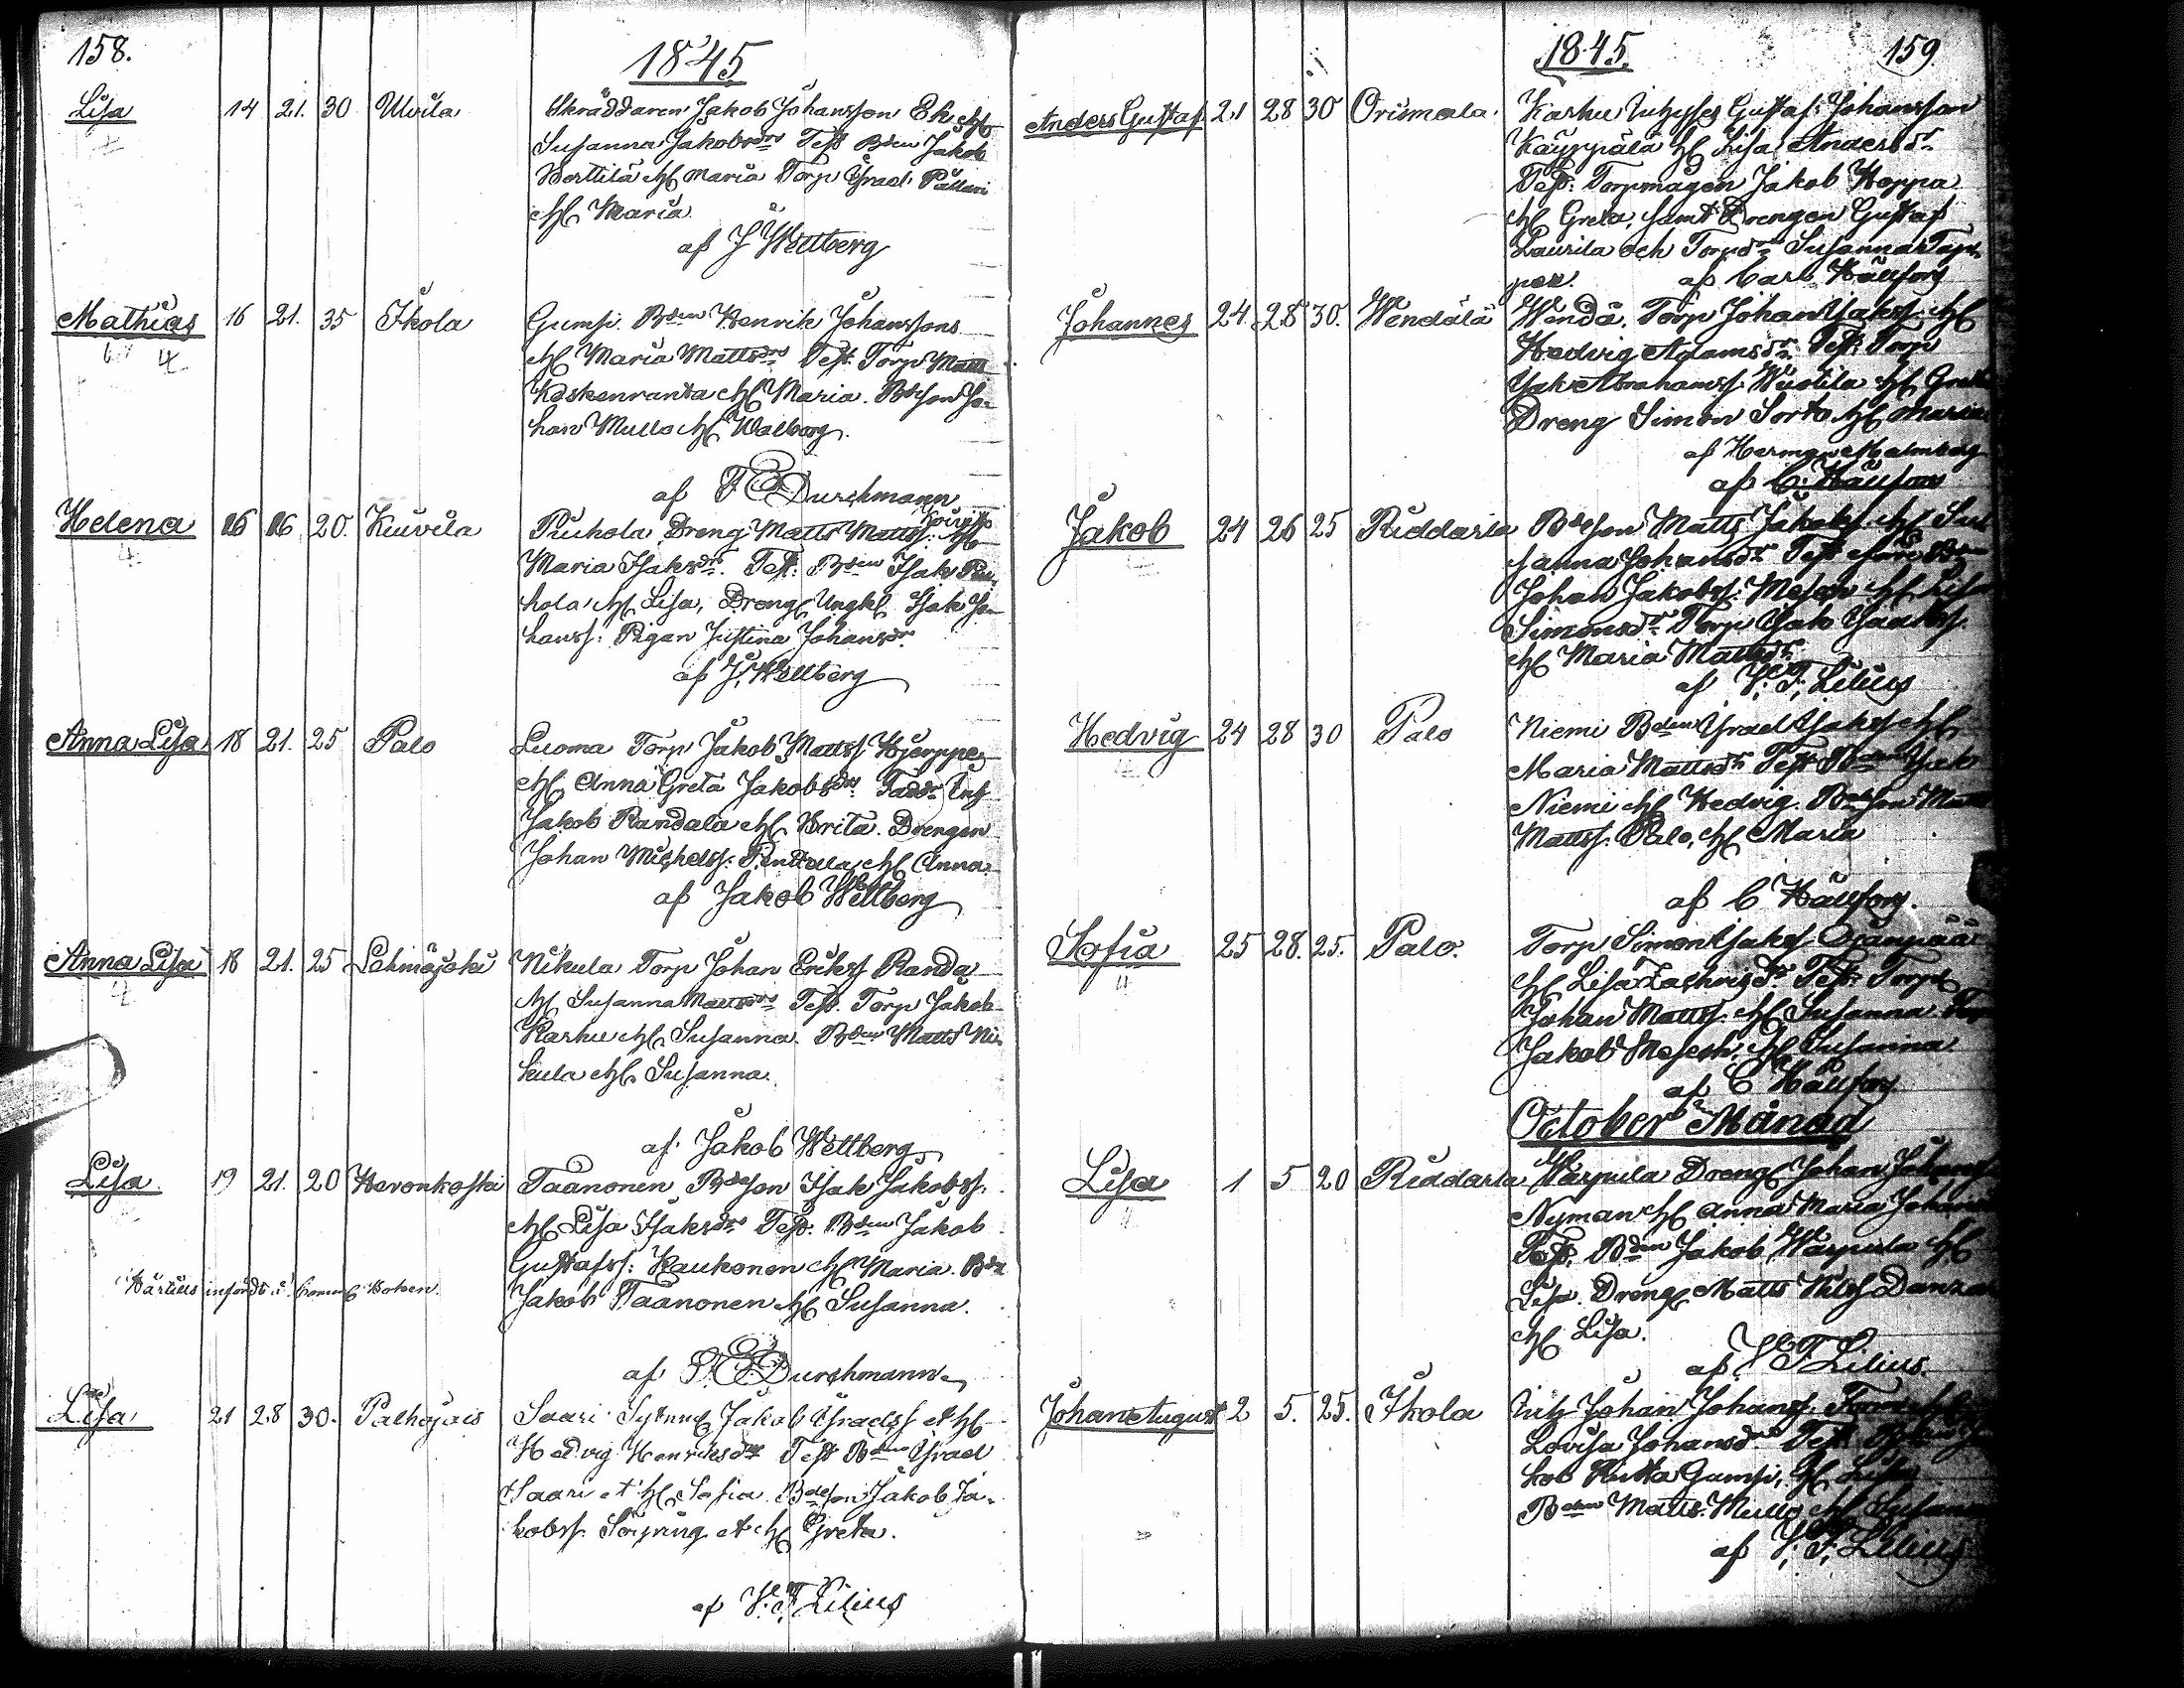 158.
1845
Lisa 14 21. 30 Ulvila Skräddaren Jakob Johansson Ek et H
Susanna Jakobsdrs Test Bden Jakob
Berttilä et H Maria Torp Israel Pällari
et H Maria
af J Wettberg
Mathias 16 21. 35 Ikola Gumsi Bden Henrik Johanssons
et H Maria Mattsdrs Test. Torp Matts
Koskenranta et H Maria. Bdeson Jo-
han Mullo et H Walborg.
af F E Durchmann
Helena 16 16 20. Kuivila Piuhola Dreng Matts Mattss: et H
Maria Isaksdr. Test: Bden Isak Piu-
hola et H Lisa, Dreng Ungkl Isak Jo-
hanss: Pigan Justina Johansdr.
af J. Wettberg
Anna Lisa 18 21. 25 Palo Luoma Torp Jakob Mattss Hjerppe
et H Anna Greta Jakobsdrs Fadd. Inh
Jakob Randala et H Brita. Drengen
Johan Michelss: Penttala et H Anna
af Jakob Wettberg
Anna Lisa 18 21. 25 Lehmäjoki Nikula Torp Johan Erikss Randa
et H Susanna Mattsdrs Test. Torp Jakob
Karhu et H Susanna. Bden Matts Ni-
kula et H Susanna.
af Jakob Wettberg
Lisa. 19 21. 20 Heronkoski Taanonen Bdeson Isak Jakobss.
et H Lisa Isaksdrs Test. Bden Jakob
Gustafss: Kaukonen et H Maria. Bdn
infördt i Boken.
Jakob Taanonen et H Susanna.
af F. E. Durchmann
Lisa 21 28 30. Palhojais Saari Jakob Israelss et H
Hedvig Henriksdrs Test Bden Israel
Saari et H Sofia. Bdeson Jakob Ja-
kobss. et H Greta.
af V. F. Lilius
1845. 159.
Anders Gustaf 21 28 30 Orismala. Karhu Inhyses Gustaf Johansson
Käyppälä et H Lisa Andersdr
Test: Torpmågen Jakob Hoppa
et H Greta, samt Drengen Gustaf
Laurila och Torpdr Susanna Tap-
per. af Carl Hällfors
Johannes 24 28 30. Wendälä Wendä. Torp Johan Isakss et H
Hedvig Adamsdr Test: Torp
Isak Abrahamss Wuotila et H Greta
Dreng Simon Sorto et H Maria
af Herman Malmberg
af C. Hällfors
Jakob 24 26 25 Riddarla Bdeson Matts Jakobss et H Su-
sanna Johansdr Test
Johan Jakobss. et H Lisa
Simonsdr Torp Isak Isaakss
et H Maria Mattsdr
af V. F. Lilius
Hedvig 24 28 30 Palo Niemi Bden Israel Isakss et H
Maria Mattsdr Test Bden Isak
Niemi et H Hedvig. Bdeson Matts
Mattss. Palo, et H Maria
af C Hällfors.
Sofia 25 28. 25. Palo. Torp Simon Isakss
et H Lisa Test. Torp
Johan Mattss. et H Susanna Torp
Jakob et H Susanna
af C Hällfors
October Månad
Lisa 1 5 20 Riddarla Warpula Dreng Johan Johanss
Nyman et H Anna Maria Johans
Test. Bden Jakob Warpula et H
Lisa. Dreng Matts
et H Lisa.
af V. F. Lilius.
Johan August 2 5. 25. Ikola Inh Johan Johanss.
Lovisa Johansdr Test
kob Gumsi, et H Lisa
Bden Matts Mullo et H Susanna
af V. F. Lilius